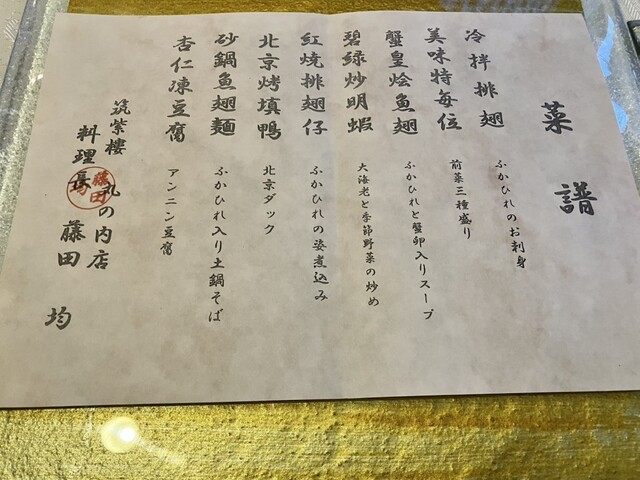 菜譜
冷拌排翅
ふかひれのお刺身
美味特每位
前菜三種盛り
蟹皇烩魚翅
ふかひれと蟹卵入りスープ
碧緑炒明蝦
大海老と季節野菜の炒め
紅焼排翅仔
ふかひれの姿煮込み
北京烤填鴨
北京ダック
砂鍋魚翅麺
ふかひれ入り土鍋そば
杏仁凍豆腐
アンニン豆腐
筑紫樓 の内店
料理長 藤田 均
藤田